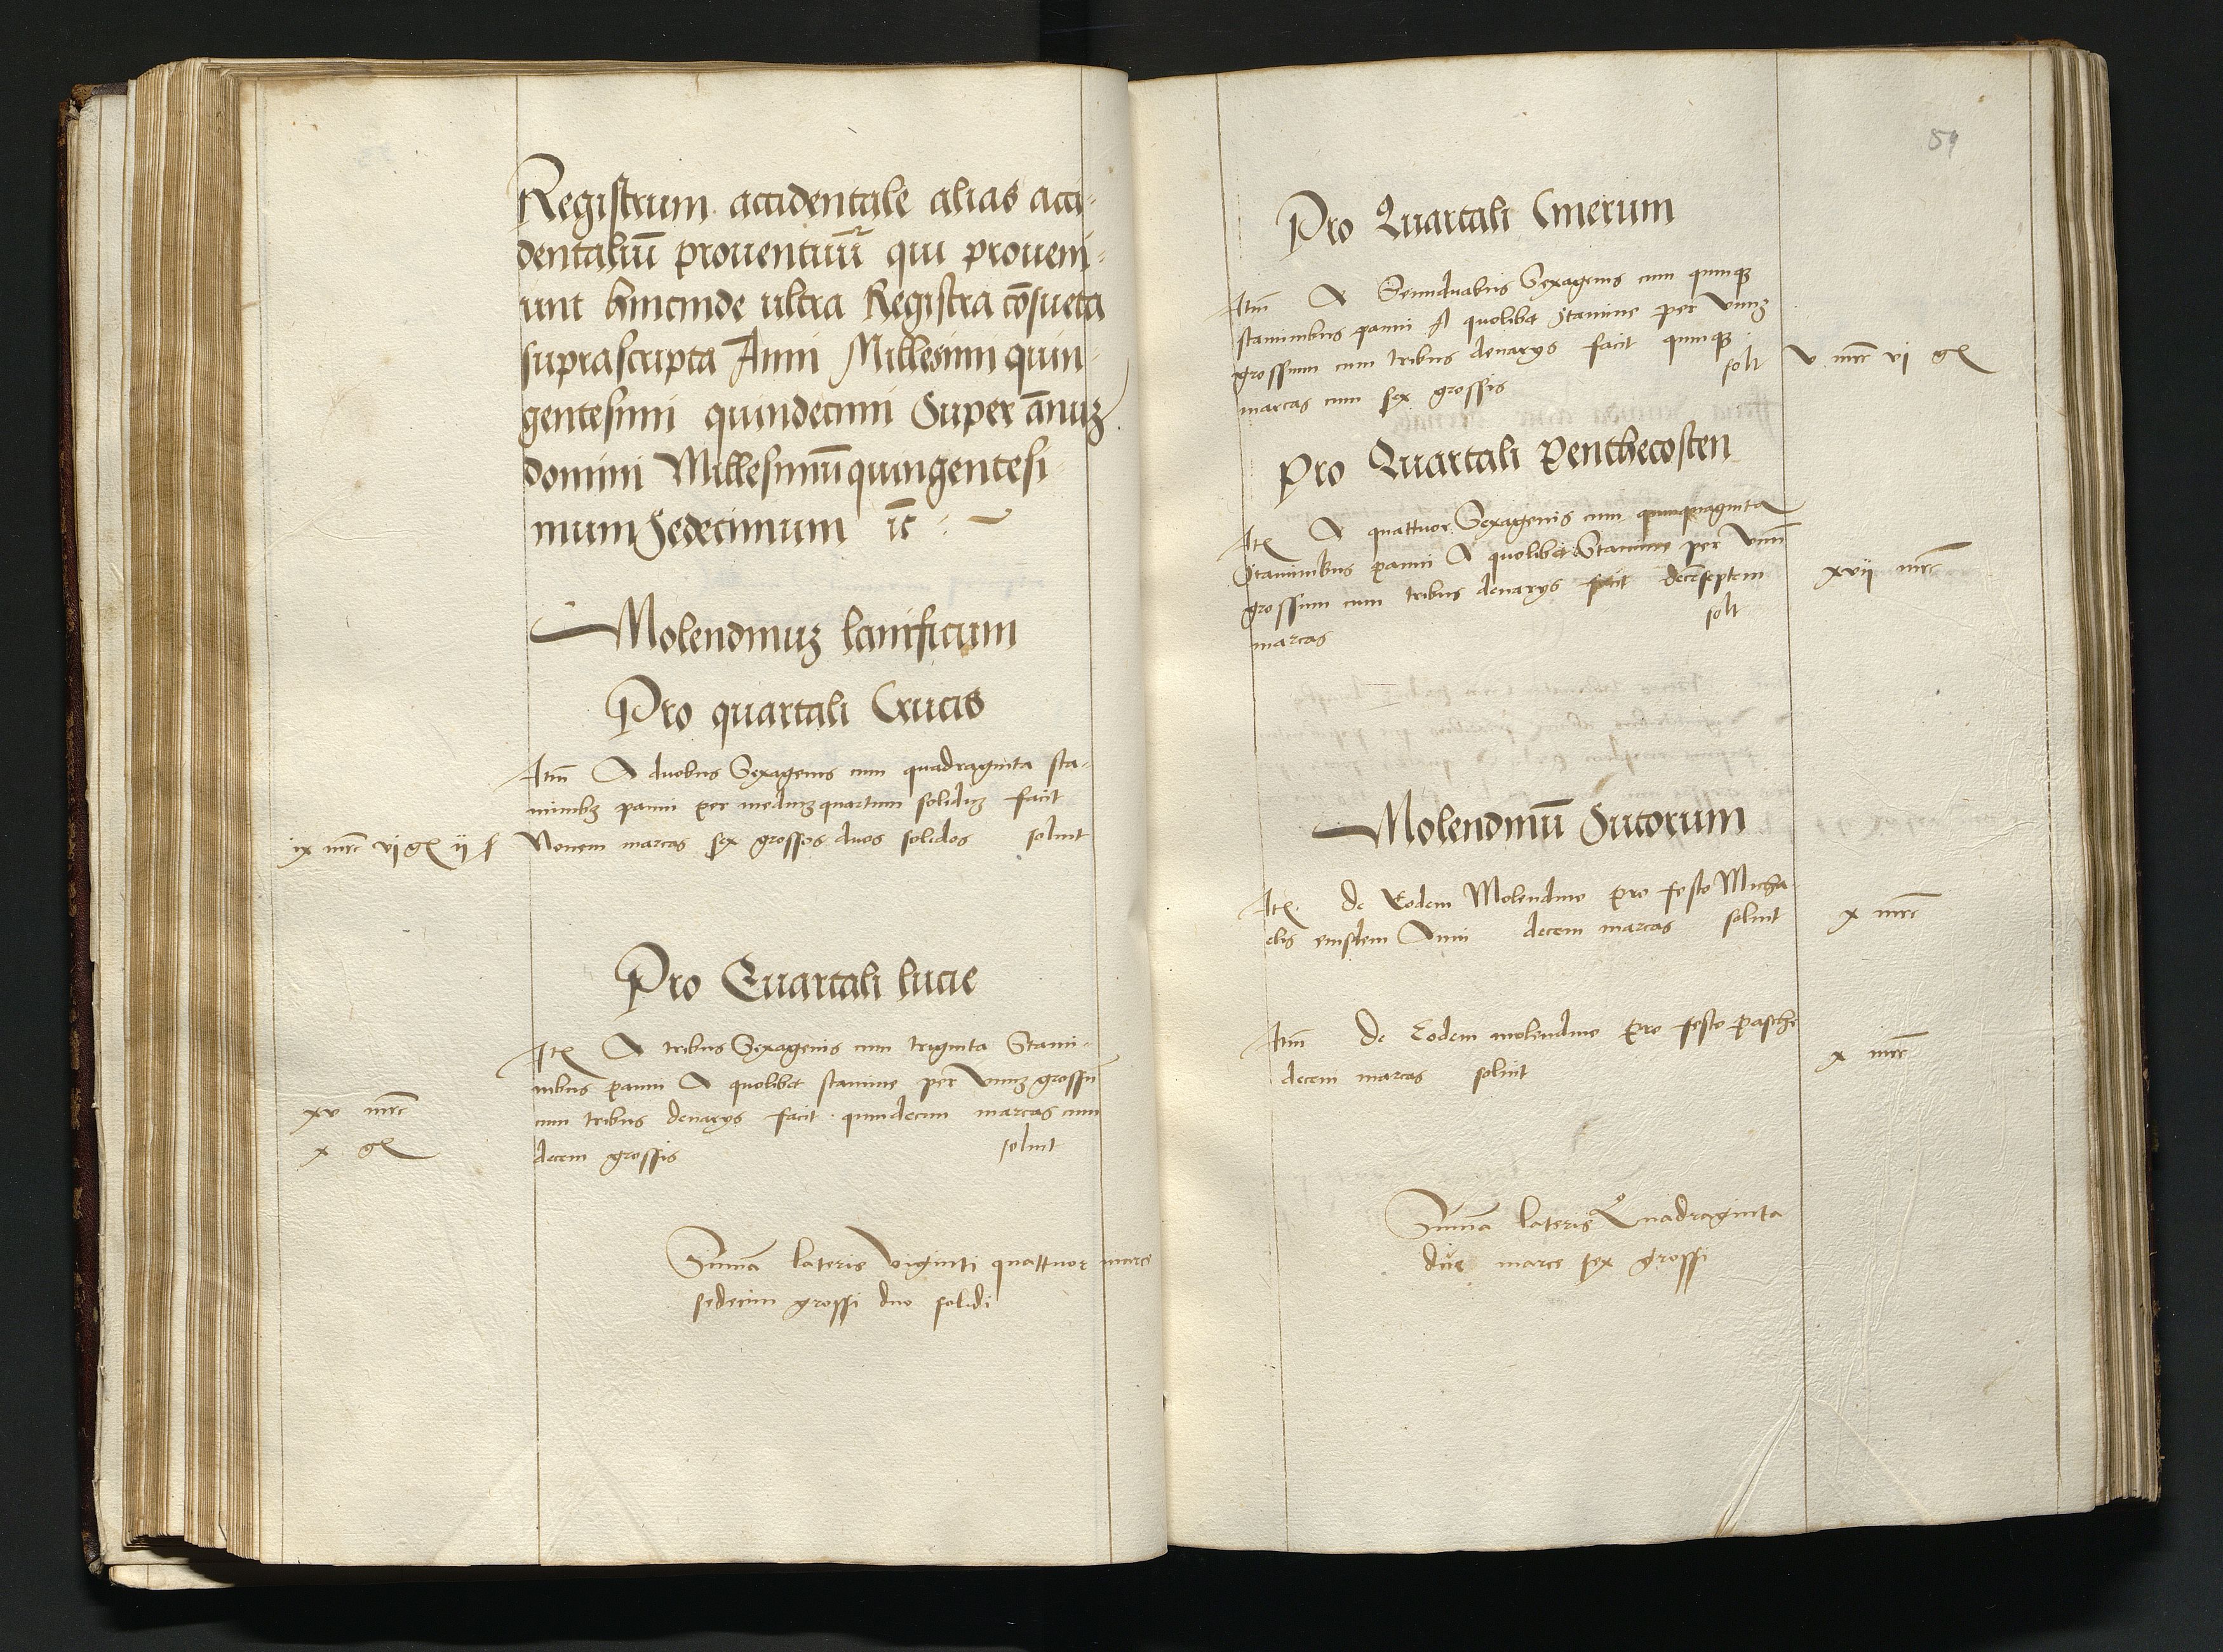 Registrum accidentale alias acci-
dentaliū prouentuū qui proueni-
unt hincinde ultra Registra cōsueta
suprascripta Anni Millesimi quin-
gentesimi quindecimi Super annuʒ
domini Millesimū quingentesi
mum Sedecimum
Molendinuʒ lanificum
Pro quartali Crucis
Itm̄ A duobus Sexagenis cum quadraginta sta-
minibʒ panni per mediuʒ quartum soliduʒ facit
ix mrc vj gͦ ij s Nouem marcas sex grossos duos solidos soluit
Pro Quartali lucie
Itᷓ A tribus Sexagenis cum triginta Stami-
nibus panni A quolibet stamine per Vnuʒ grossū
xv mrc cum tribus denarys facit quindecim marcas cum
x gͦ decem grossis soluit
Sūma lateris Viginti quattuor marce
sedecim grossi duo solidi
54
Pro Quartali Cinerum
Itm̄ A Sexagenis cum quinqʒ
staminibus panni A quolibet Stamine per Vnuʒ
grossum cum tribus denarys facit quinqʒ
marcas cum sex grossis solt v mrc vj gͦ
Pro Quartali Penthecosten
Itᷓ A quattuor Sexagenis cum quinquaginta
Staminibus panni A quolibet Stamine per Vnū
grossum cum tribus denarys facit decēseptem xvij mrc
marcas solt
Molendinū Sutorum
Itᷓ de Eodem Molendino pro festo Micha
elis eiusdem Anni decem marcas soluit x mrc
Itm̄ de Eodem molendino pro festo pasche
decem marcas soluit x mrc
Sūma lateris Quadraginta
due marce sex grossi